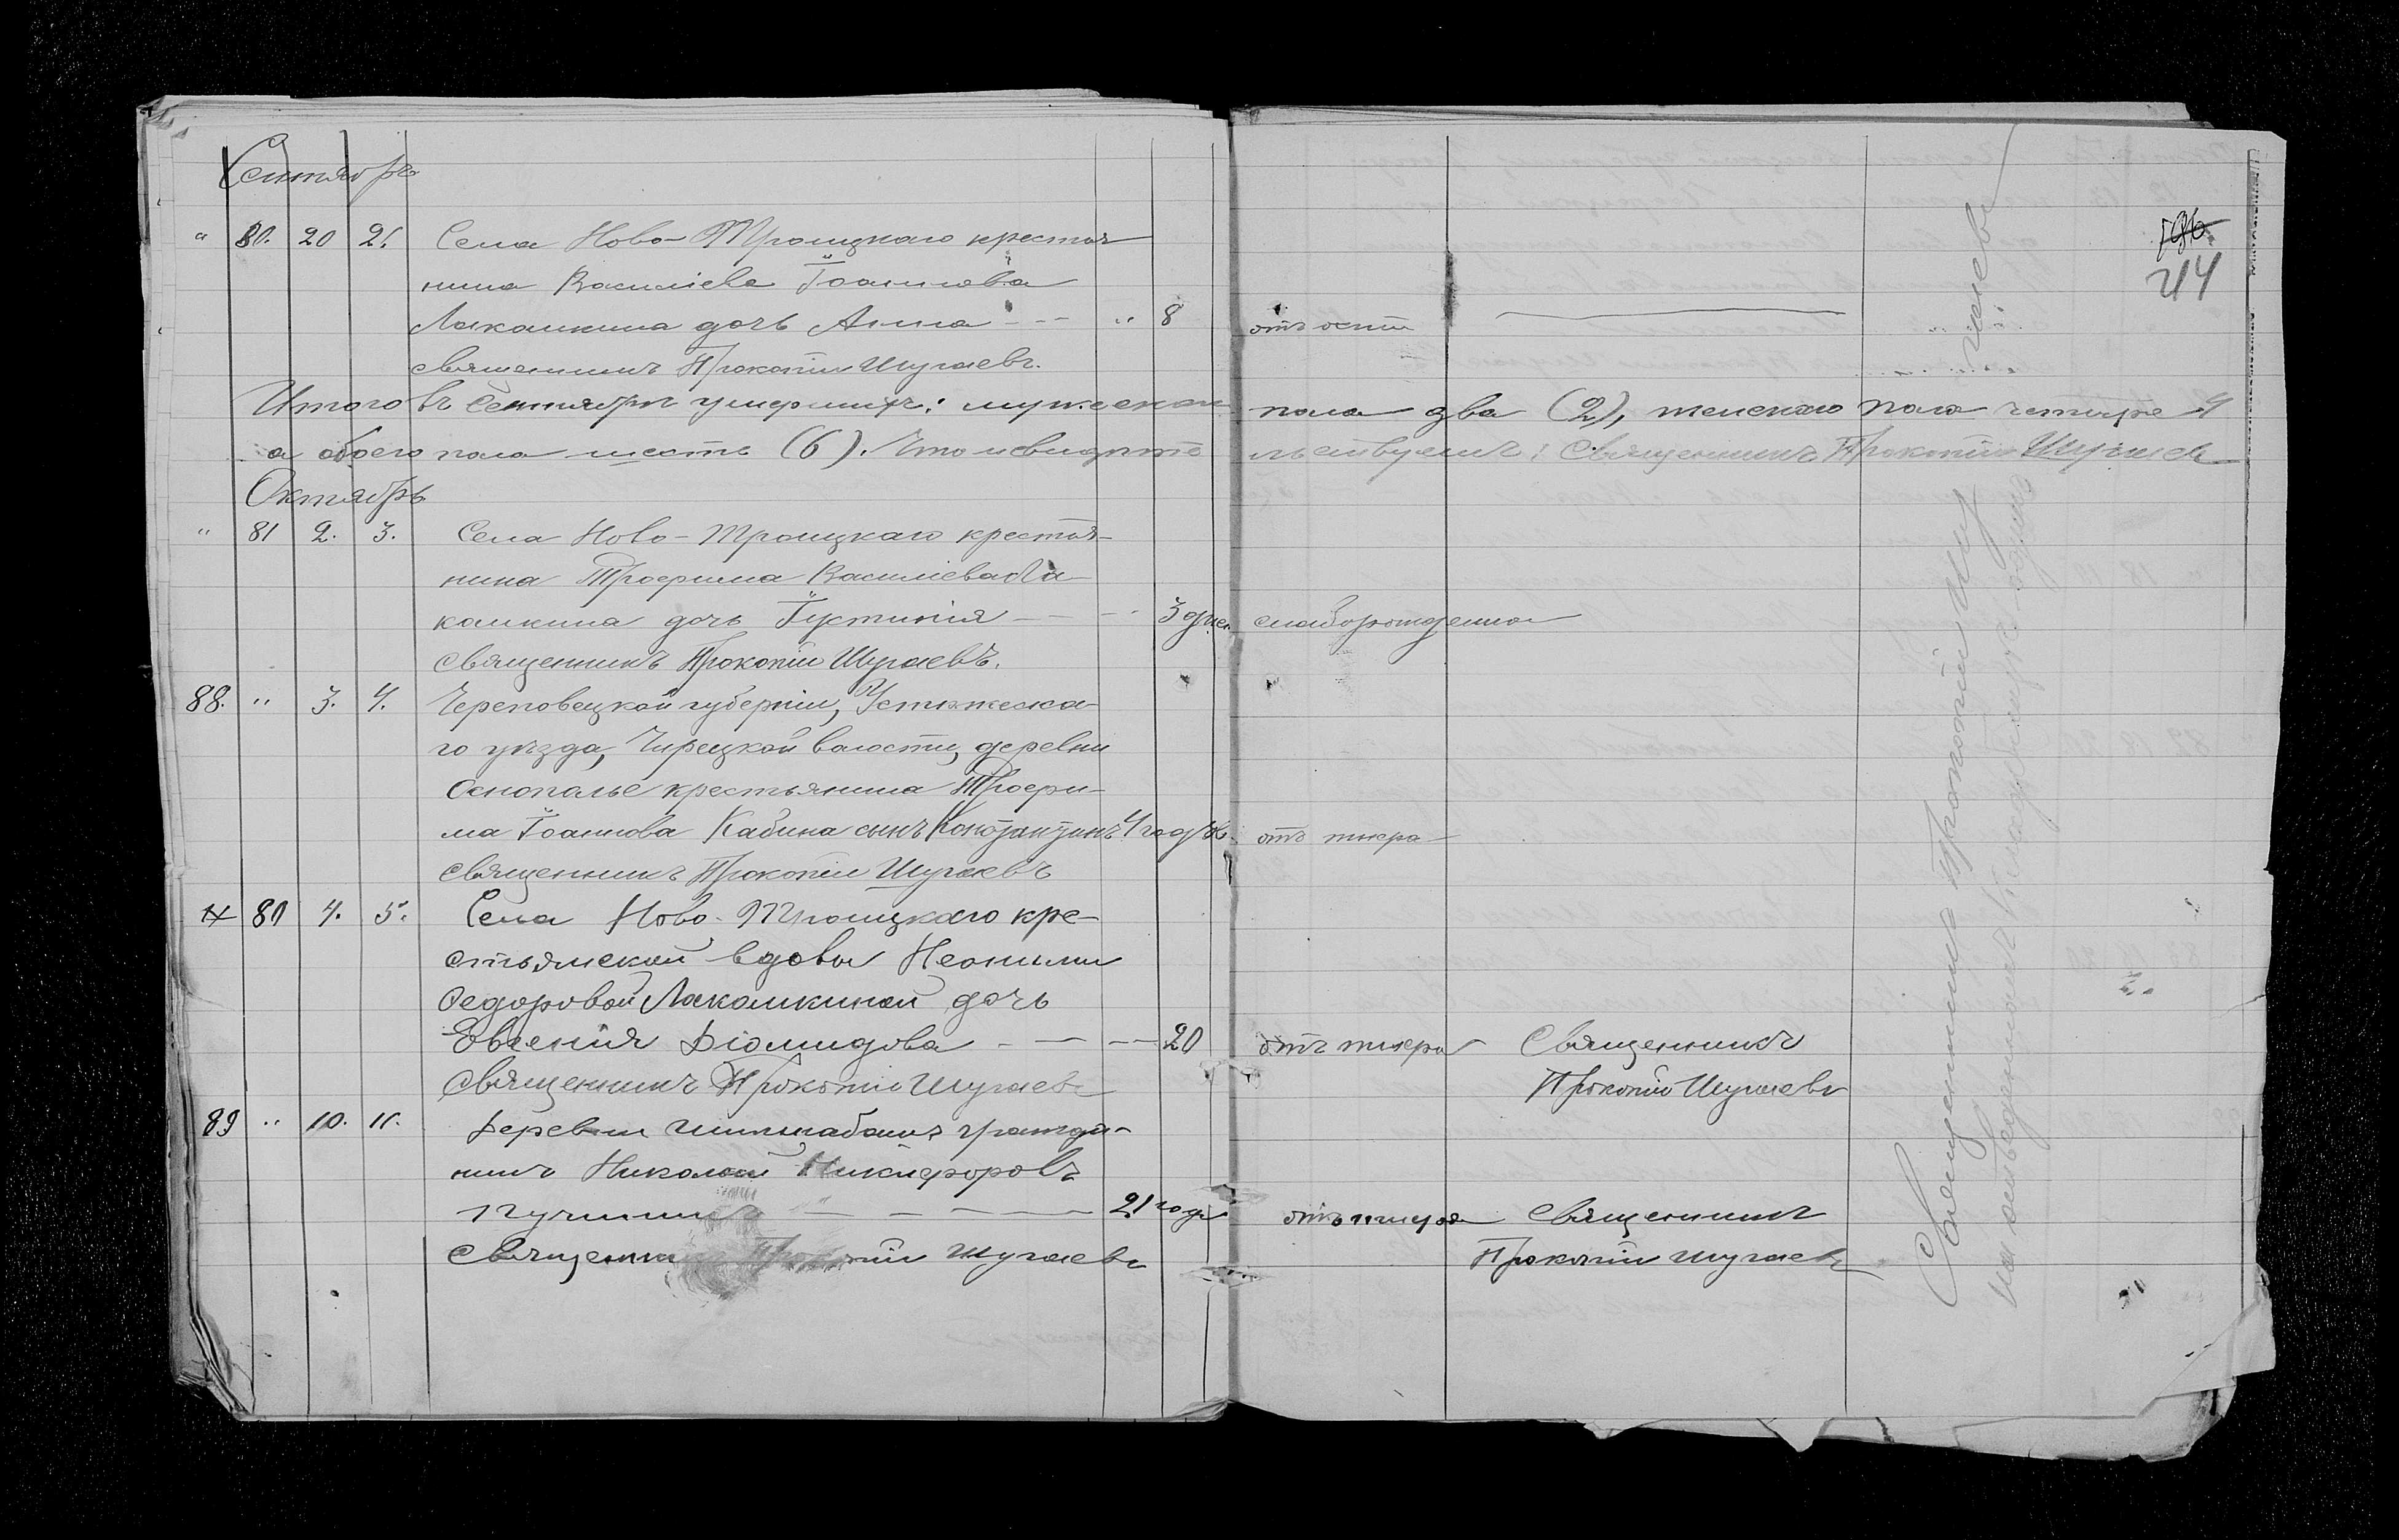 Сентябрь
196
244
" 80. 20 21. Села Ново-Троицкаго крестья
нина Василiева Iоаннова
Лакамкина дочь Анна - - - " 8 отъ оспы
священникъ Прокопiй Шугаевъ.
Итого въ Сентябрѣ умершихъ: мужескаго пола два (2), женскаго пола четыре 4
а обоего пола шесть (6). Что и свидѣте льствуетъ: Священникъ Прокопiй Шугаевъ
Октябрь
" 81 2. 3. Села Ново-Троицкаго крестья-
нина Трофима Василiева Ла-
камкина дочь Iустинiя — - - 3 дней слаборожденная
священникъ Прокопiй Шугаевъ.
88. " 3. 4. Череповецкой губернiи, Устюжска-
го уѣзда, Чирецкой волости, деревни
Оснополье крестьянина Трофи-
ма Iоаннова Кабина сынъ Константинъ 4 года отъ тифа
священникъ Прокопiй Шугаевъ
81 4. 5. Села Ново-Троицкаго кре-
стьянской вдовы Неонилы
Ѳедоровой Лакамкиной дочь
Евгенiя Дiомидова - — — 20 отъ тифа Священникъ
Священникъ Прокопiй Шугаевъ Прокопiй Шугаевъ
89 " 10. 11. Деревни гражда-
нинъ Николай Никифоровъ
— — — — 21 года отъ тифа Священникъ
Священникъ Прокопiй Шугаевъ Прокопiй Шугаевъ
Священникъ Прокопiй Шугаевъ
на кладбищѣ